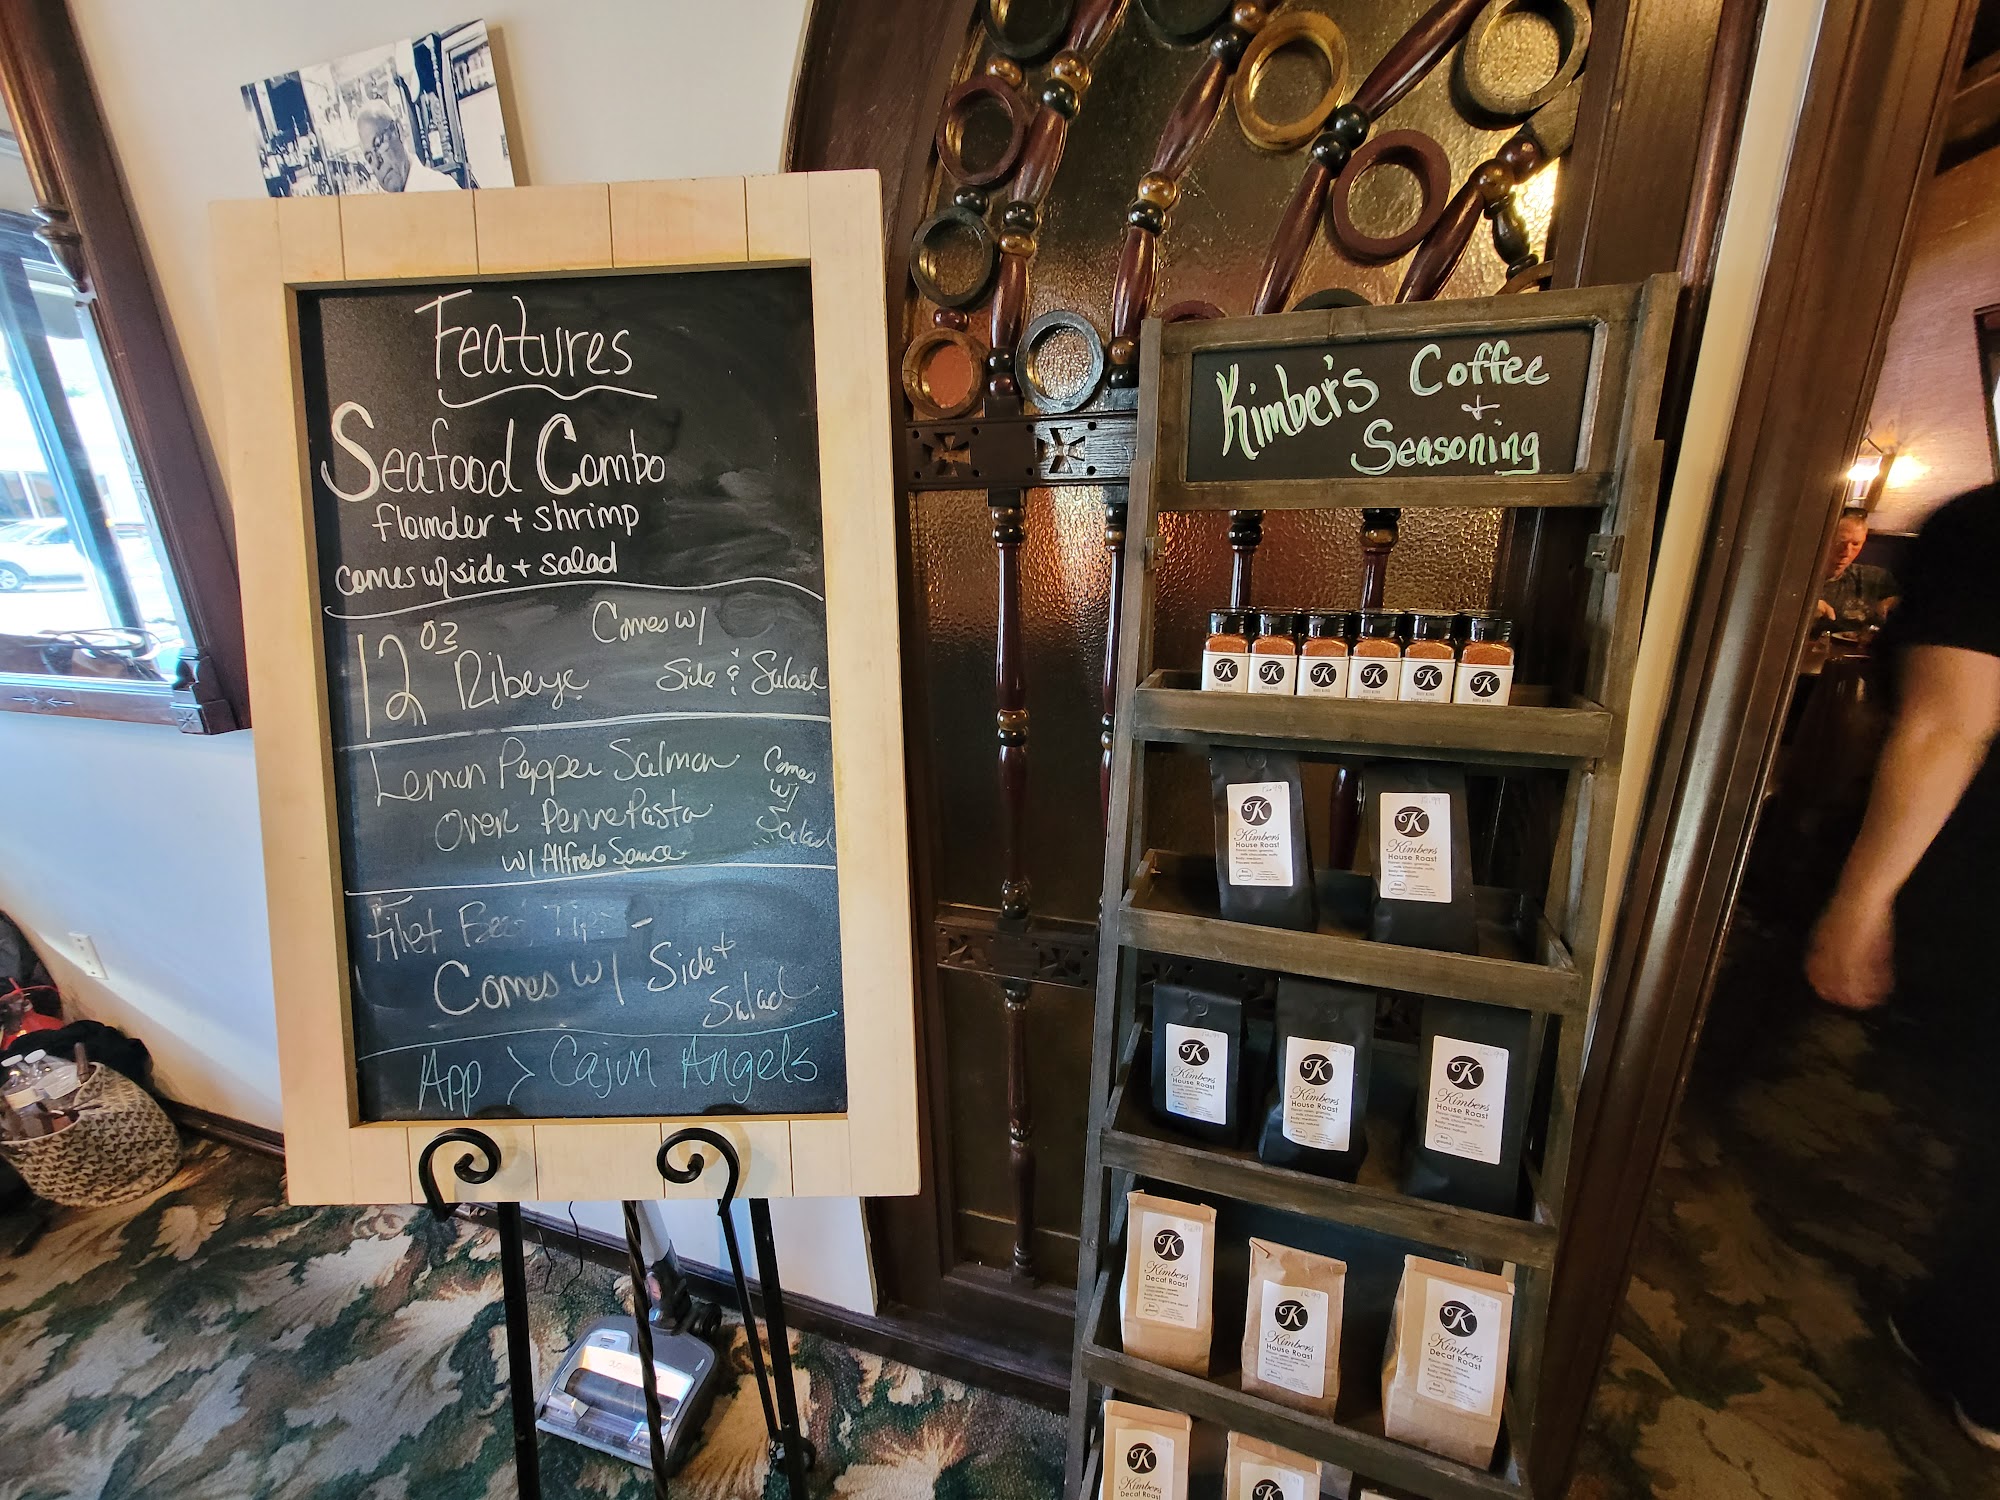 Features
Seafood Combo
flounder + shrimp
comes w/ side + salad
12 oz Ribeye
Comes w/
Side & Salad
Lemon Pepper Salmon
Over Penne Pasta
w/ Alfredo Sauce
Comes
w/
Salad
Filet Beef Tips -
Comes w/ Side +
Salad
App > Cajun Angels
Kimber's Coffee
+
Seasoning
K
K
K
K
K
K
K
Kimbers
House Roast
K
Kimbers
House Roast
K
Kimbers
House Roast
K
Kimbers
House Roast
K
Kimbers
House Roast
K
Kimbers
Decaf Roast
K
Kimbers
House Roast
K
Kimbers
Decaf Roast
K
Kimbers
Decaf Roast
K